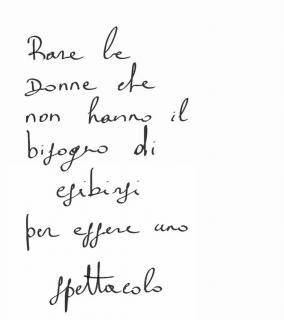 Rare le
Donne che
non hanno il
bisogno di
esibirsi
per essere uno
spettacolo